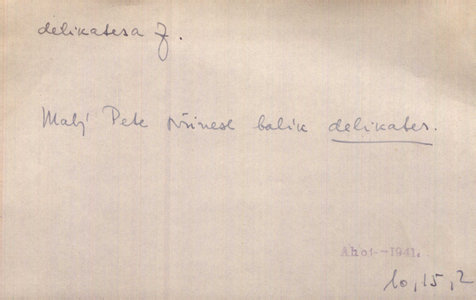 delikatesa f.
Malý Pete přinese balík delikates.
Ahoj-1941.
10,15,2